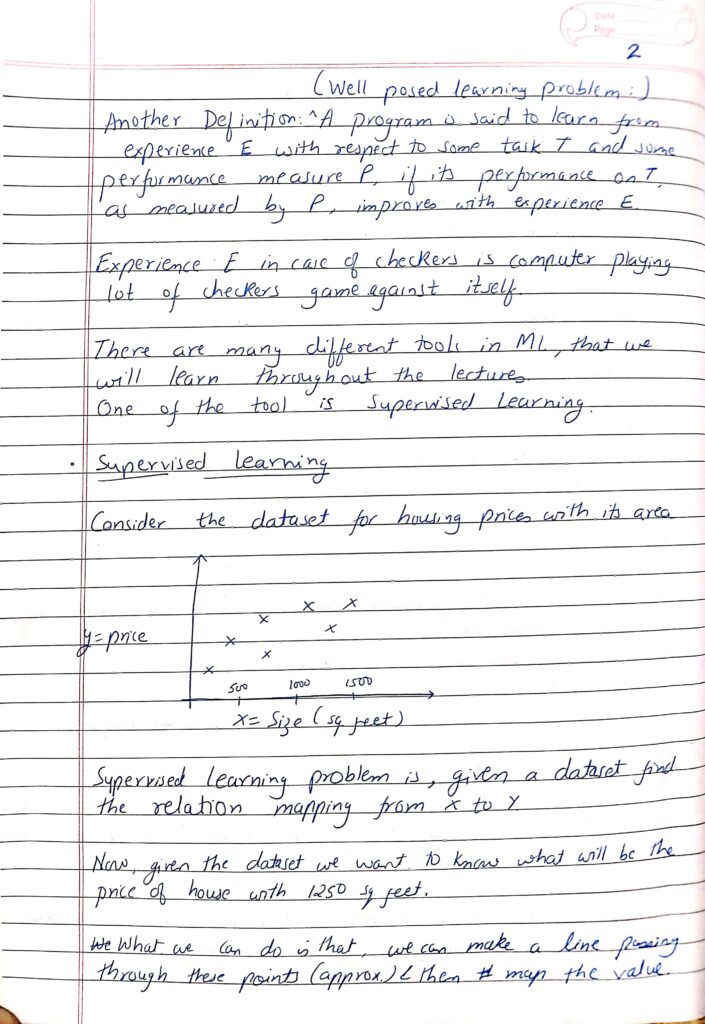 Date
Page
2
(Well posed learning problem:)
Another Definition: "A program is said to learn from
experience E with respect to some task T and some
performance measure P, if its performance on T,
as measured by P, improves with experience E.
Experience E in case of checkers is computer playing
lot of checkers game against itself.
There are many different tools in ML, that we
will learn throughout the lectures
One of the tool is Supervised Learning.
• Supervised learning
Consider the dataset for housing prices with its area
y = price
500 1000 1500
x = Size (sq feet)
Supervised Learning problem is, given a dataset find
the relation mapping from x to y
Now, given the dataset we want to know what will be the
price of house with 1250 sq feet.
We What we can do is that, we can make a line passing
through these points (approx.) & then map the value.